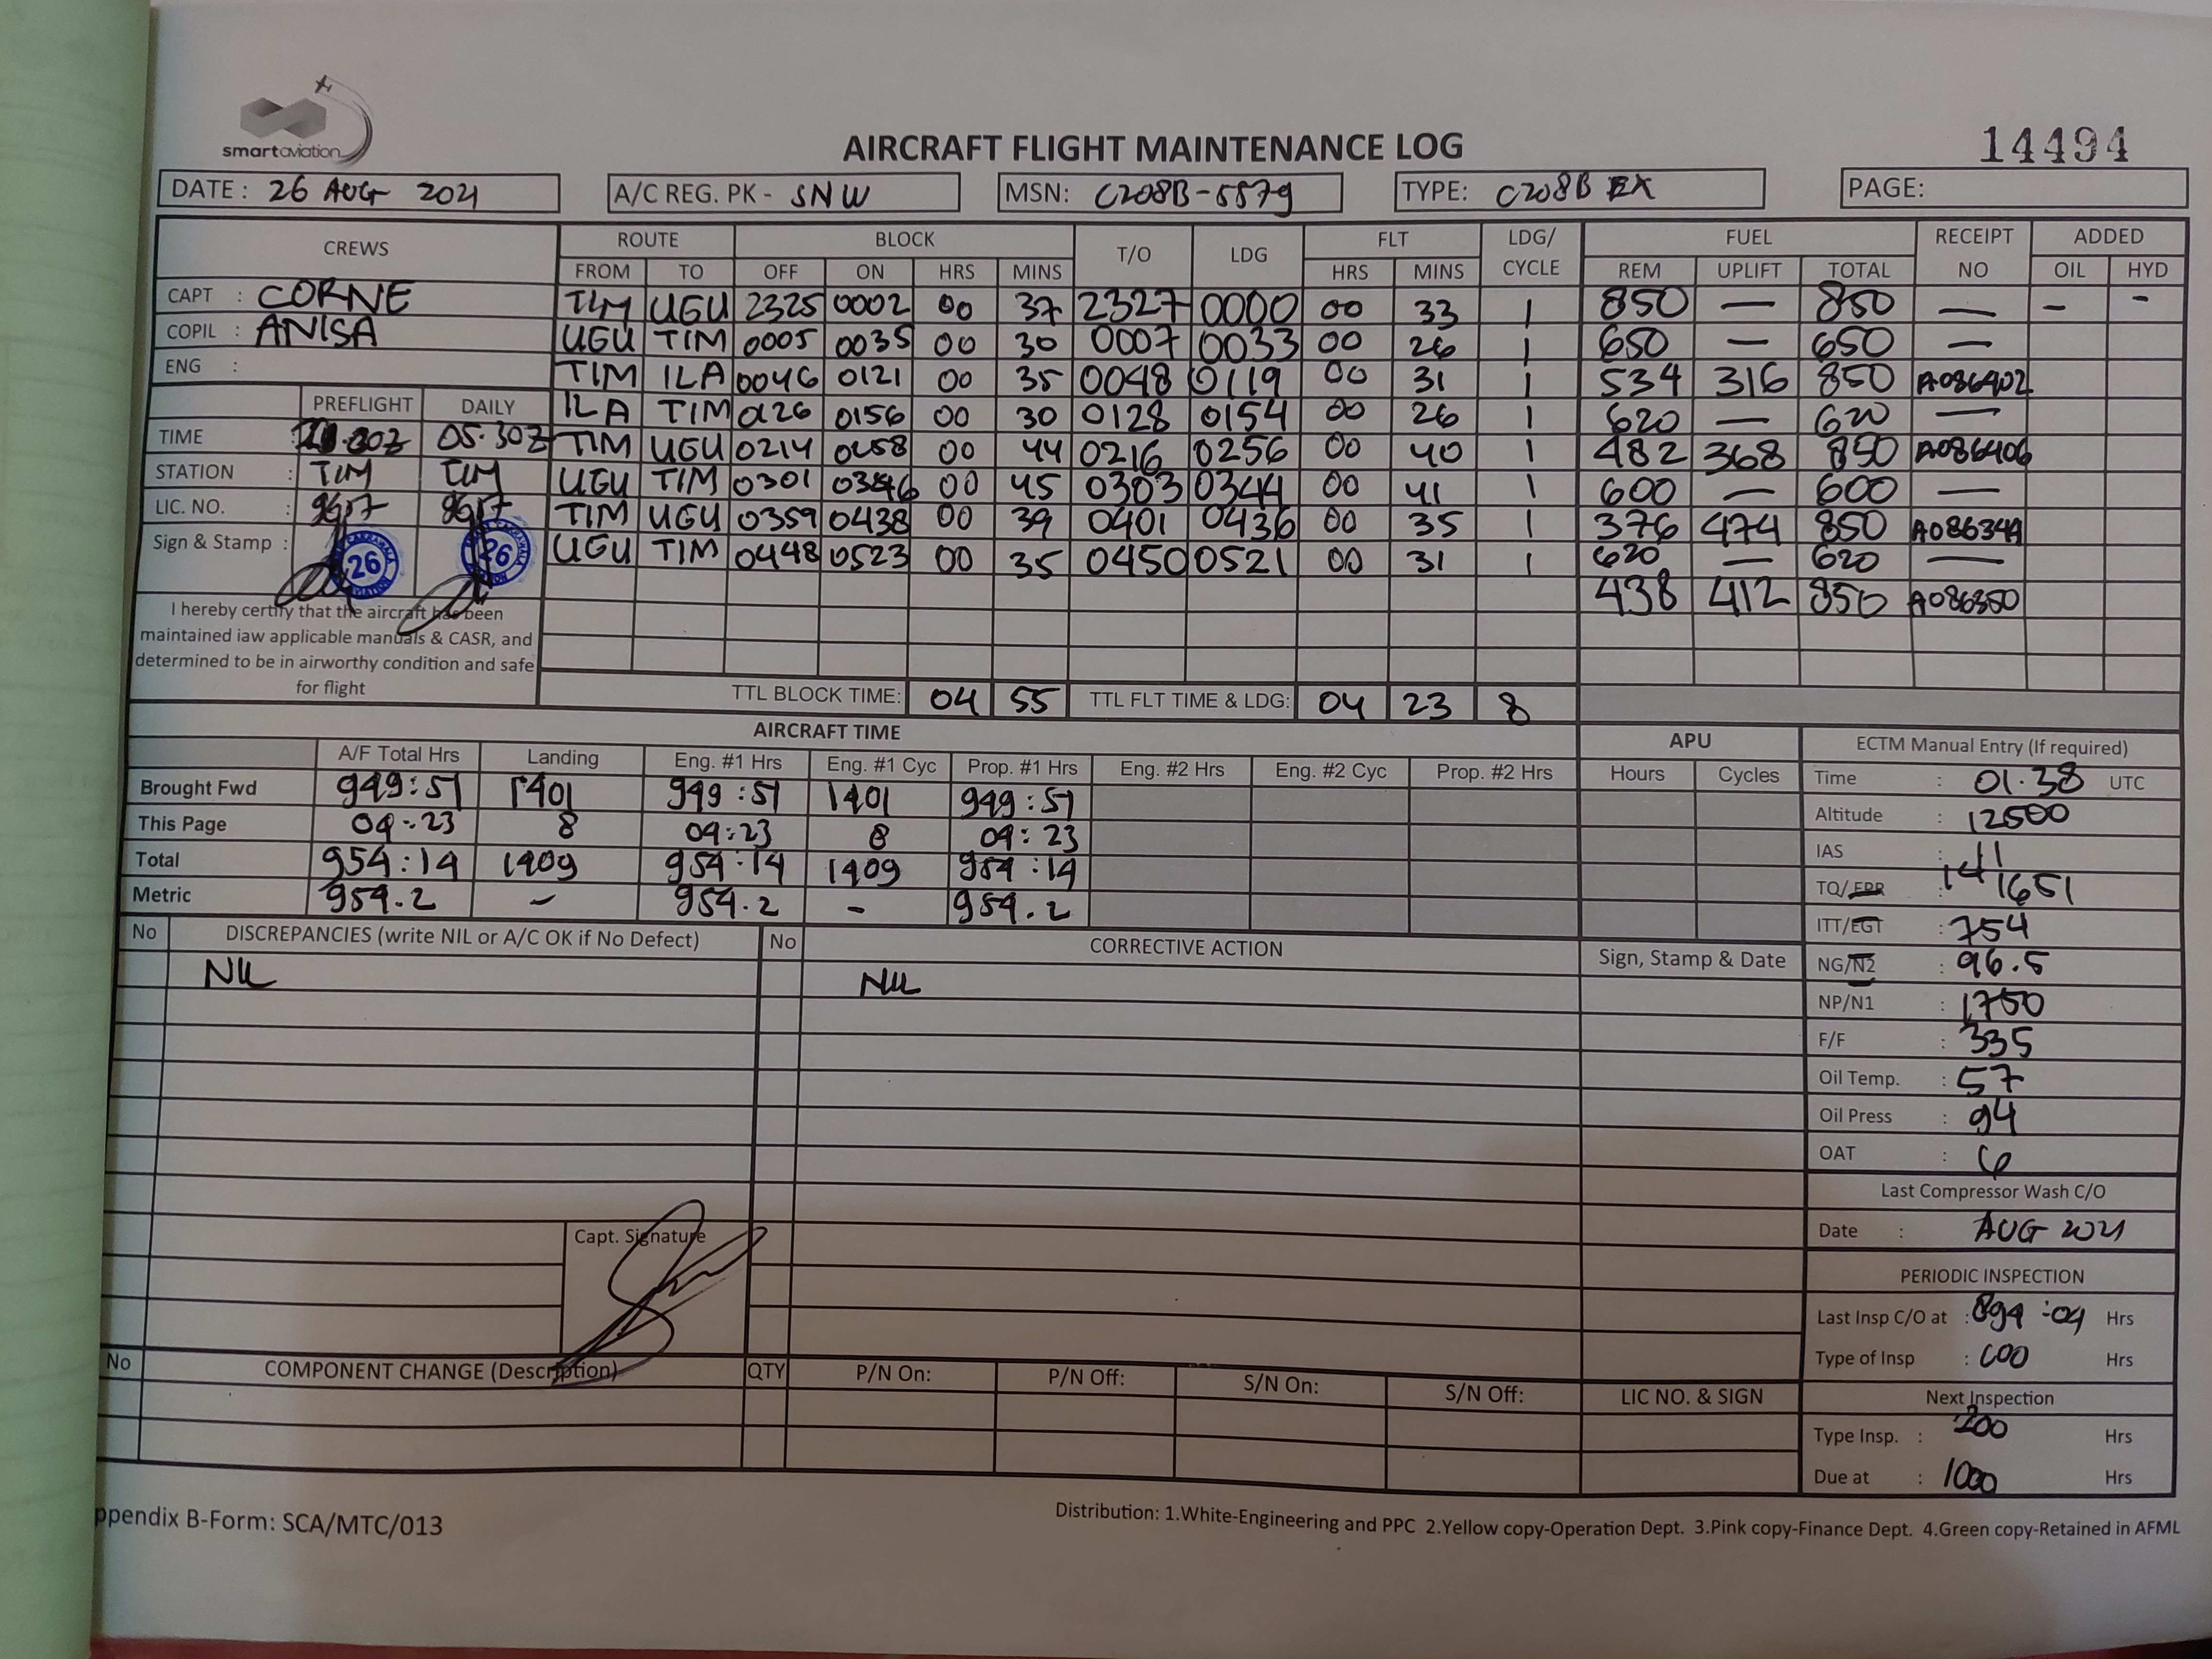 smartaviation
AIRCRAFT FLIGHT MAINTENANCE LOG
14494
DATE: 26 AUG 2021 A/C REG. PK - SNW MSN: C208B-5579 TYPE: C208B EX PAGE:
CREWS ROUTE BLOCK T/O LDG FLT LDG/ CYCLE FUEL RECEIPT NO ADDED
FROM TO OFF ON HRS MINS HRS MINS REM UPLIFT TOTAL OIL HYD
CAPT : CORNE TIM UGU 2325 0002 00 37 2327 0000 00 33 1 850 — 850 — - -
COPIL : ANISA UGU TIM 0005 0035 00 30 0007 0033 00 26 1 650 — 650 —
ENG : TIM ILA 0046 0121 00 35 0048 0119 00 31 1 534 316 850 A086402
PREFLIGHT DAILY ILA TIM 0126 0156 00 30 0128 0154 00 26 1 620 — 620 —
TIME 05.30Z TIM UGU 0214 0258 00 44 0216 0256 00 40 1 482 368 850 A086406
STATION : TIM TIM UGU TIM 0301 0346 00 45 0303 0344 00 41 1 600 — 600 —
LIC. NO. : 9617 9617 TIM UGU 0359 0438 00 39 0401 0436 00 35 1 376 474 850 A086349
Sign & Stamp : 26 26 UGU TIM 0448 0523 00 35 0450 0521 00 31 1 620 — 620 —
438 412 850 A086350
I hereby certify that the aircraft has been
maintained iaw applicable manuals & CASR, and
determined to be in airworthy condition and safe
for flight
TTL BLOCK TIME: 04 55 TTL FLT TIME & LDG: 04 23 8
AIRCRAFT TIME APU ECTM Manual Entry (If required)
A/F Total Hrs Landing Eng. #1 Hrs Eng. #1 Cyc Prop. #1 Hrs Eng. #2 Hrs Eng. #2 Cyc Prop. #2 Hrs Hours Cycles
Brought Fwd 949:51 1401 949:51 1401 949:51
This Page 04:23 8 04:23 8 04:23
Total 954:14 1409 954:14 1409 954:14
Metric 954.2 - 954.2 - 954.2
Time : 01.38 UTC
Altitude : 12500
IAS : 141
TQ/EPR : 1651
ITT/EGT : 754
NG/N2 : 96.5
NP/N1 : 1750
F/F : 335
Oil Temp. : 57
Oil Press : 94
OAT : 6
Last Compressor Wash C/O
Date : AUG 2021
PERIODIC INSPECTION
Last Insp C/O at : 894:04 Hrs
Type of Insp : Hrs
Next Inspection
Type Insp. : 200 Hrs
Due at : 1000 Hrs
No DISCREPANCIES (write NIL or A/C OK if No Defect) No CORRECTIVE ACTION Sign, Stamp & Date
NIL NIL
Capt. Signature
No COMPONENT CHANGE (Description) QTY P/N On: P/N Off: S/N On: S/N Off: LIC NO. & SIGN
ppendix B-Form: SCA/MTC/013
Distribution: 1.White-Engineering and PPC 2.Yellow copy-Operation Dept. 3.Pink copy-Finance Dept. 4.Green copy-Retained in AFML